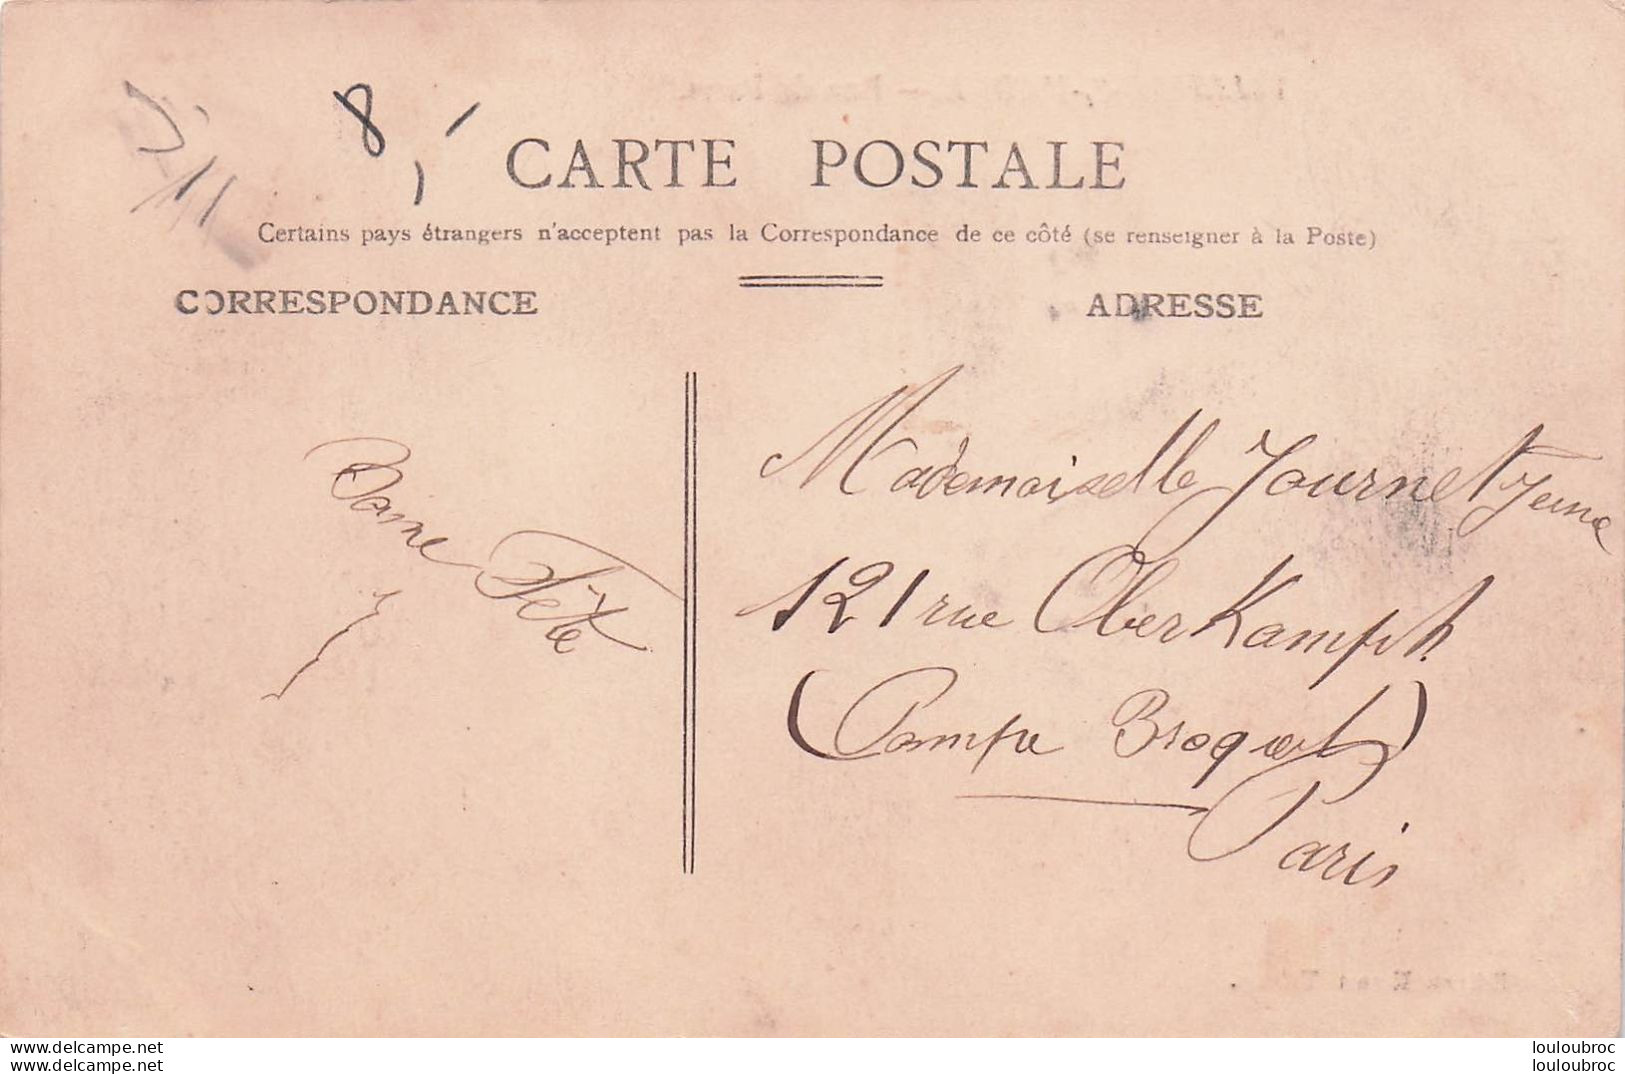 8,-
CARTE POSTALE
Certains pays étrangers n'acceptent pas la Correspondance de ce côté (se renseigner à la Poste)
CORRESPONDANCE
ADRESSE
Mademoiselle Journet Jeune
121 rue OberKampf
(Pompe Broquet)
Paris
Bonne Fête
www.delcampe.net
www.delcampe.net
louloubroc
louloubroc